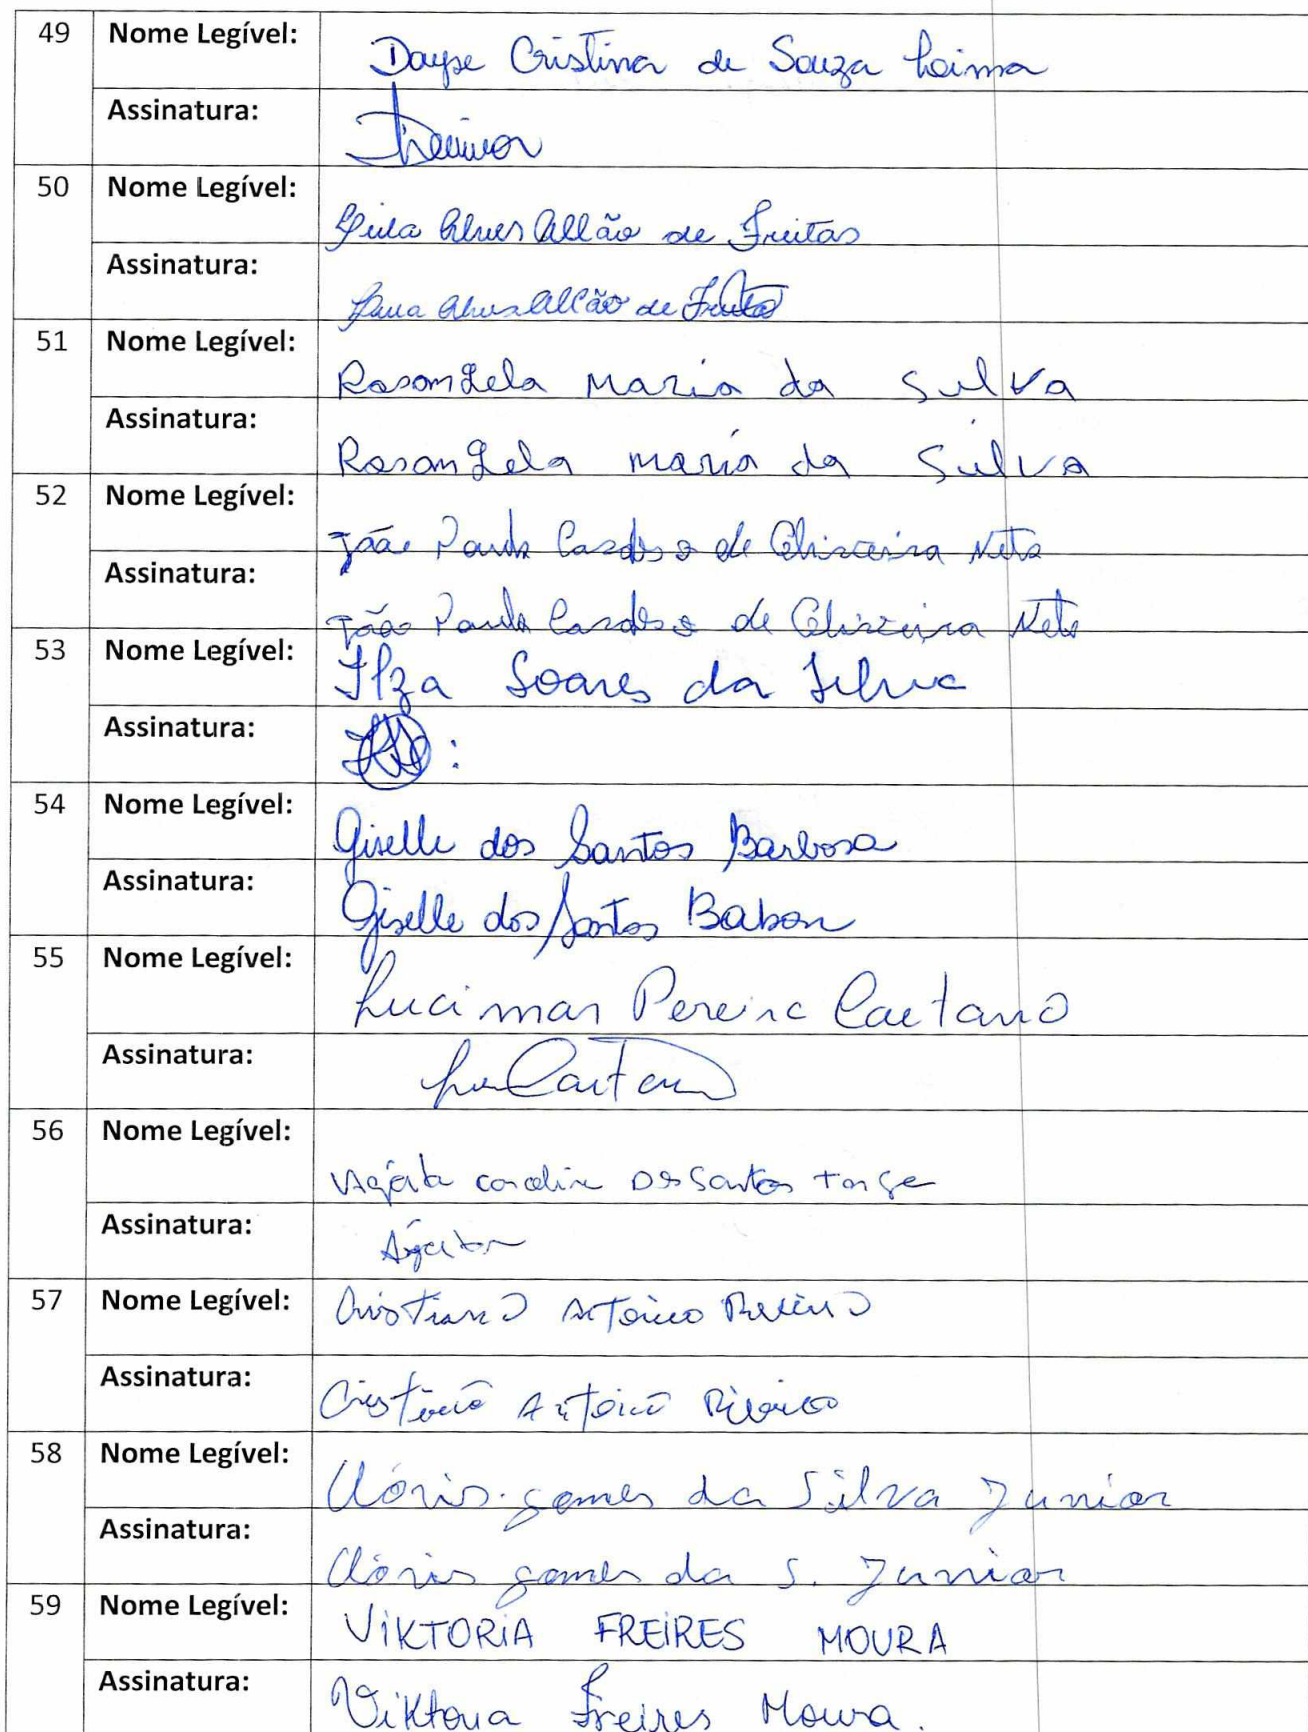 49 Nome Legível: Dayse Cristina de Souza Leima
Assinatura:
50 Nome Legível: Alves Allão de Freitas
Assinatura: Alves Allão de Freitas
51 Nome Legível: Rosangela Maria da Silva
Assinatura: Rosangela maria da Silva
52 Nome Legível: João Paulo Cardoso de Oliveira Neto
Assinatura: João Paulo Cardoso de Oliveira Neto
53 Nome Legível: Ilza Soares da Silva
Assinatura:
54 Nome Legível: Giselle dos Santos Barbosa
Assinatura: Giselle dos Santos
55 Nome Legível: Lucimar Pereira Caetano
Assinatura:
56 Nome Legível: Santos
Assinatura:
57 Nome Legível: Cristiano Antonio
Assinatura: Cristiano Antonio Ribeiro
58 Nome Legível: Clóvis gomes da Silva Junior
Assinatura: Clóvis gomes da S. Junior
59 Nome Legível: VIKTORIA FREIRES MOURA
Assinatura: Viktoria Freires Moura.